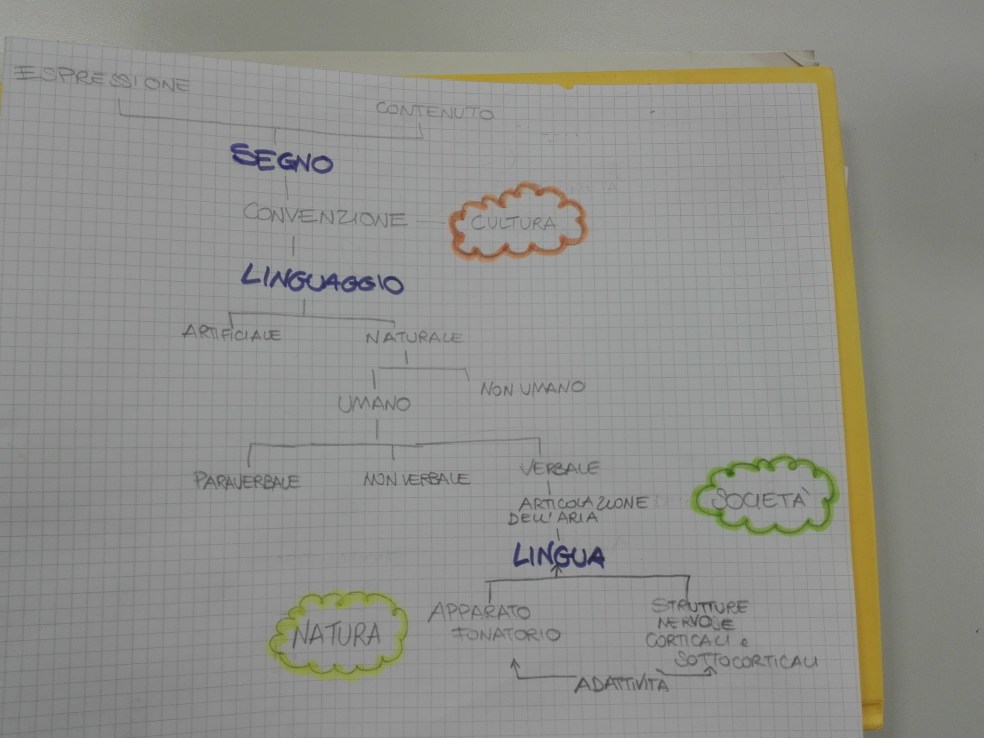 ESPRESSIONE
CONTENUTO
SEGNO
CONVENZIONE
CULTURA
LINGUAGGIO
ARTIFICIALE
NATURALE
NON UMANO
UMANO
PARAVERBALE
NON VERBALE
VERBALE
ARTICOLAZIONE
DELL'ARIA
SOCIETÀ
LINGUA
NATURA
APPARATO
FONATORIO
STRUTTURE
NERVOSE
CORTICALI e
SOTTOCORTICALI
ADATTIVITÀ